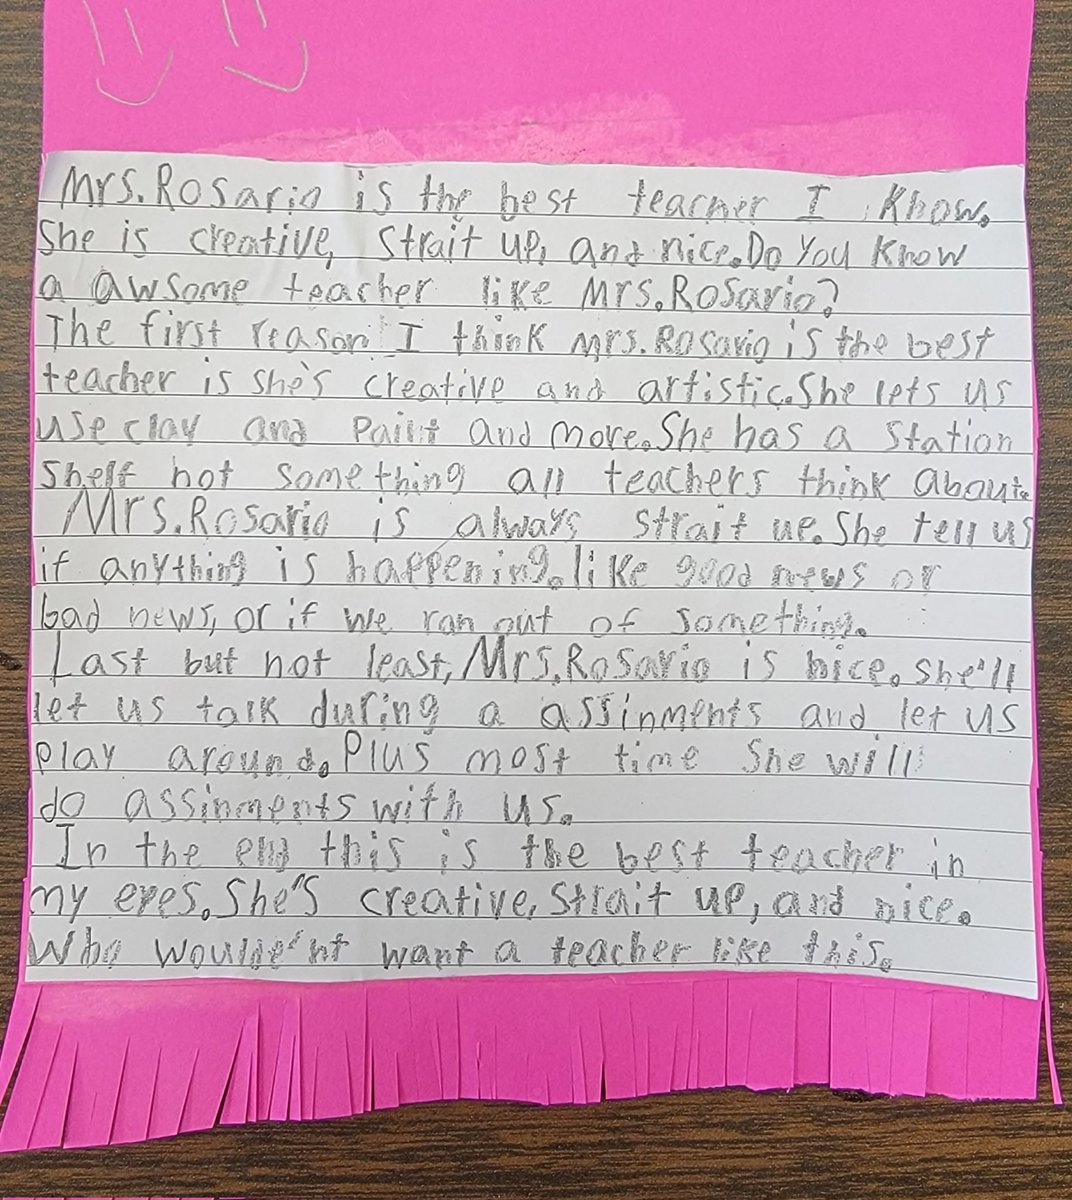 Mrs. Rosario is the best teacher I know.
She is creative, strait up, and nice. Do you know
a awsome teacher like Mrs. Rosario?
The first reason I think Mrs. Rosario is the best
teacher is she's creative and artistic. She lets us
use clay and paint and more. She has a station
shelf not something all teachers think about.
Mrs. Rosario is always strait up. She tell us
if anything is happening. like good news or
bad news, or if we ran out of something.
Last but not least, Mrs. Rosario is nice. she'll
let us talk during a assinments and let us
play around. Plus most time she will
do assinments with us.
In the end this is the best teacher in
my eyes. She's creative, strait up, and nice.
Who woulde'nt want a teacher like this.